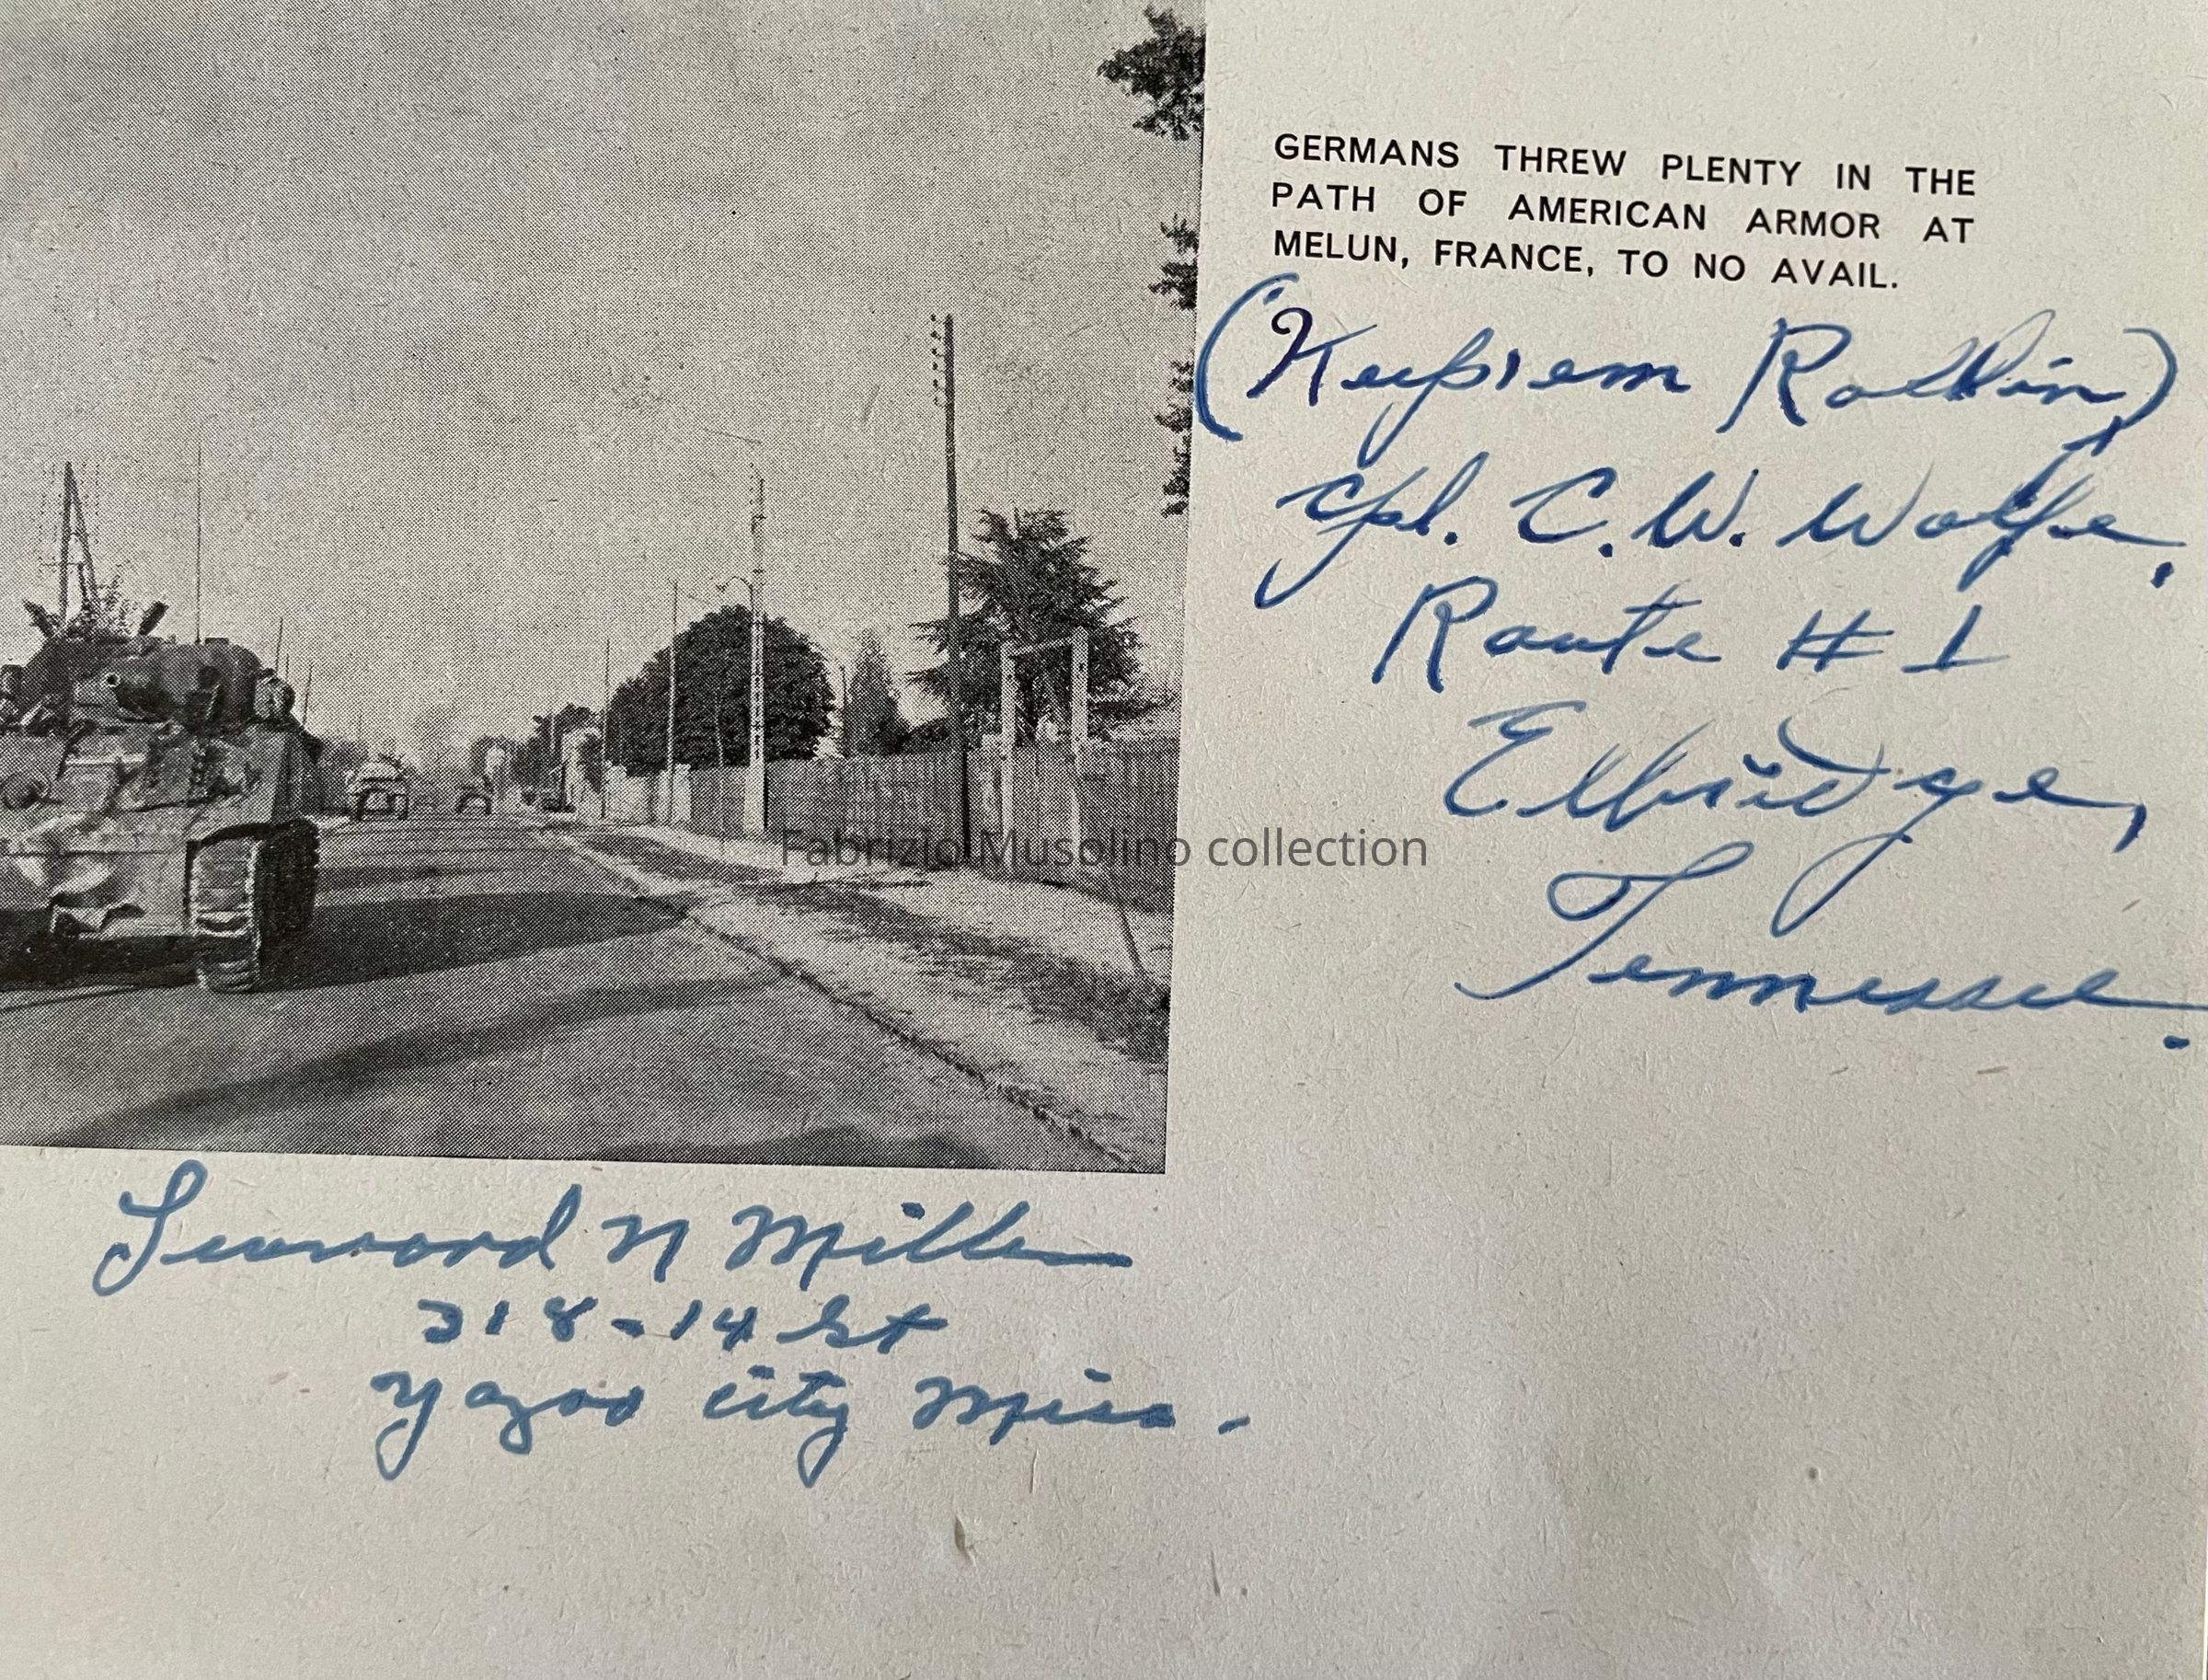 GERMANS THREW PLENTY IN THE
PATH OF AMERICAN ARMOR AT
MELUN, FRANCE, TO NO AVAIL.
(Keep'em Rollin)
Cpl. C. W. Wolfe,
Route # 1
Elbridge,
Tennessee.
Fabrizio Musolino collection
N Miller
218-14 St
Yazoo city Miss.